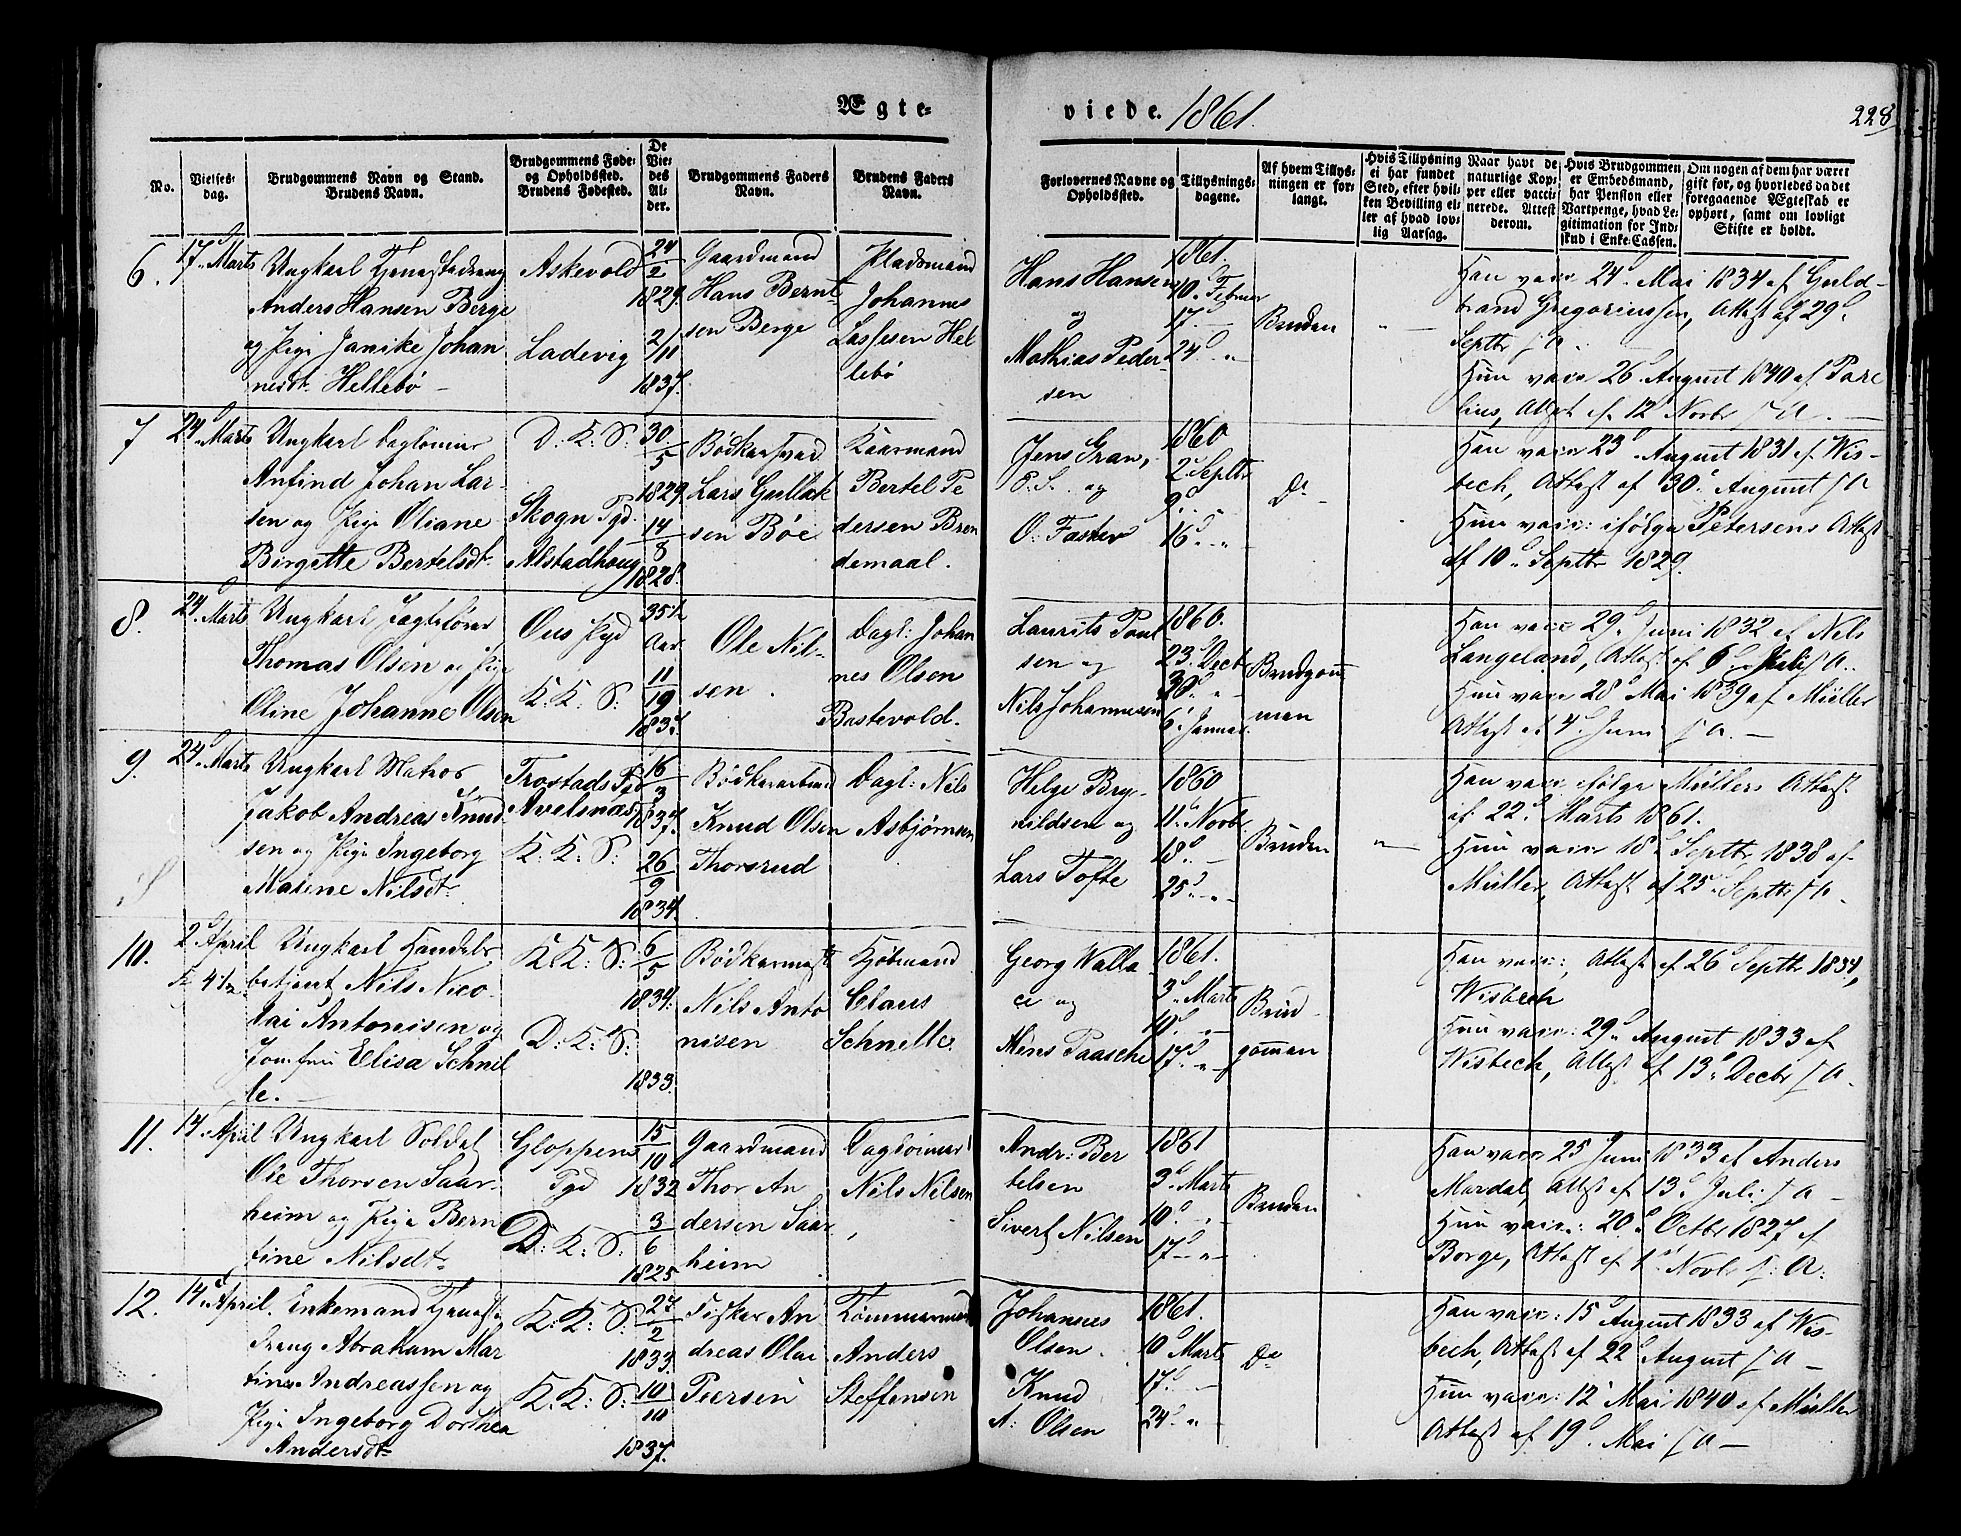 Ægte=
viede. 1861.
228
No.
Vielses=
dag.
Brudgommens Navn og Stand.
Brudens Navn.
Brudgommens Føde=
og Opholdssted.
Brudens Fødested.
De
Vie=
des
Al=
der.
Brudgommens Faders
Navn.
Brudens Faders
Navn.
Forlovernes Navne og
Opholdssted.
Tillysnings=
dagene.
Af hvem Tillys=
ningen er for=
langt.
Hvis Tillysning
ei har fundet
Sted, efter hvil=
ken Bevilling el=
ler af hvad lov=
lig Aarsag.
Naar havt de
naturlige Kop=
per eller vacci=
nerede. Attest
derom.
Hvis Brudgommen
er Embedsmand,
har Pension eller
Vartpenge, hvad Le=
gitimation for Ind=
skud i Enke=Cassen.
Om nogen af dem har været
gift før, og hvorledes da det
foregaaende Ægteskab er
ophørt, samt om lovligt
Skifte er holdt.
6.
17d Marts
Ungkarl Tjenestedreng
Anders Hansen Berge
og Pige Janike Johan
nesdt. Hellebø
Askevold
Ladevig
24/2
1829.
2/11
1837.
Gaardmand
Hans Bernt-
sen Berge
Pladsmand
Johannes
Lassesen Hel
lebø
Hans Hansen
og
Mathias Peder-
sen
1861.
10d Februar
17d
24d "
Bruden
Han vacc. 24d Mai 1834 af Guld-
brand Gregoriussen, Attest af 29d
Septbr s. A.
Hun vacc. 26d August 1840 af Pare
lius, Attest af 12d Novbr s. A.
7
24d Marts
Ungkarl Dagleiner
Anfind Johan Lar-
sen og Pige Oliane
Birgette Bertelsdt.
D. K: S:
Skogn Pgd.
Alstadhoug
30/5
1829.
14/8
1828.
Bødkersvend
Lars Gullak
sen Bøe
Kaarmand
Bertel Pe
dersen Bren
demaal.
Jens Gran,
P. S. og
O. Faster
1860
2d Septbr
9d
16d "
Do
Han vacc 23d August 1831 af Wis-
bech, Attest af 30d August s. A
Hun vacc: ifølge Petersens Attest
af 10d Septbr 1829.
8.
24d Marts
Ungkarl Jagtefører
Thomas Olsen og Pige
Oline Johanne Olsen
Ous Pgd
K. K: S:
35½
Aar
11/19
1837
Ole Nil-
sen.
Dagl: Johan
nes Olsen
Bostevold.
Laurits Poul
sen og
Nils Johannesen
1860.
23d Decbr
30d "
6d Januar.
Brudgom
man
Han vacc 29d Juni 1832 af Nels
Langeland, Attest af 6d Juli s. A.
Hun vacc 28d Mai 1839 af Müller
Attest af 4d Juni s. A.
9.
24d Marts
Ungkarl Matros
Jakob Andreas Knud
sen og Pige Ingeborg
Malene Nilsdt.
Trostads Pgd
K: K: S:
16/3
1837.
26/9
1834.
Bødkerarbeid
Knud Olsen
Thorsrud
Dagl: Nils
Asbjørnsen
Helge Bry-
nildsen og
Lars Tofte
1860
11d Novbr
18d
25d "
Bruden
Han vacc ifølge Müllers Attest
af 22d Marts 1861.
Hun vacc 18d Septbr 1838 af
Müller, Attest af 25d Septbr s. A.
10.
2d April
Kl 4½
Ungkarl Handels
betjent Nils Nico
lai Antonisen og
Jomfru Elisa Schnel
le.
K: K: S:
D: K: S:
6/5
1834.
1833.
Bødkermestr
Nils Anto
nisen
Kjøbmand
Claus
Schnelle.
Georg Walla
ce og
Mens Paasche
1861.
3d Marts
10d "
17d "
Brud
goman
Han vacc:, Attest af 26d Septbr 1834,
Wisbech
Hun vacc: 29d August 1833 af
Wisbech, Attest af 13d Decbr s. A.
11.
14d April
Ungkarl Soldat
Ole Thorsen Saar-
heim og Pige Bern
tine Nilsdt.
Gloppens
Pgd
D: K: S:
15/10
1832
3/6
1825
Gaardmand
Thor An
dersen Saar
heim
Dagleiner
Nils Nilsen
Andr: Ber
telsen
Sivert Nilsen
1861
3d Marts
10d "
17d "
Bruden
Han vacc 25 Juni 1833 af Anders
Mardal, Attest af 13d Juli s. A
Hun vacc: 20d Octbr 1827 af
Borge, Attest af 1d Novbr s. A.
12.
14d April.
Enkemand Tjeneste
dreng Abraham Mar
tin Andreassen og
Pige Ingeborg Dorthea
Andersdt.
K: K: S:
K: K: S:
27/2
1833.
10/10
1837.
Fisker An
dreas Olai
Peersen
Tømmermand
Anders
Steffensen
Johannes
Olsen.
Knud
A: Olsen
1861.
10d Marts
17d
24d "
Do
Han vacc: 15d August 1833 af Wis-
bech, Attest af 22d August s. A
Hun vacc: 12d Mai 1840 af Müller
Attest af 19d Mai s. A